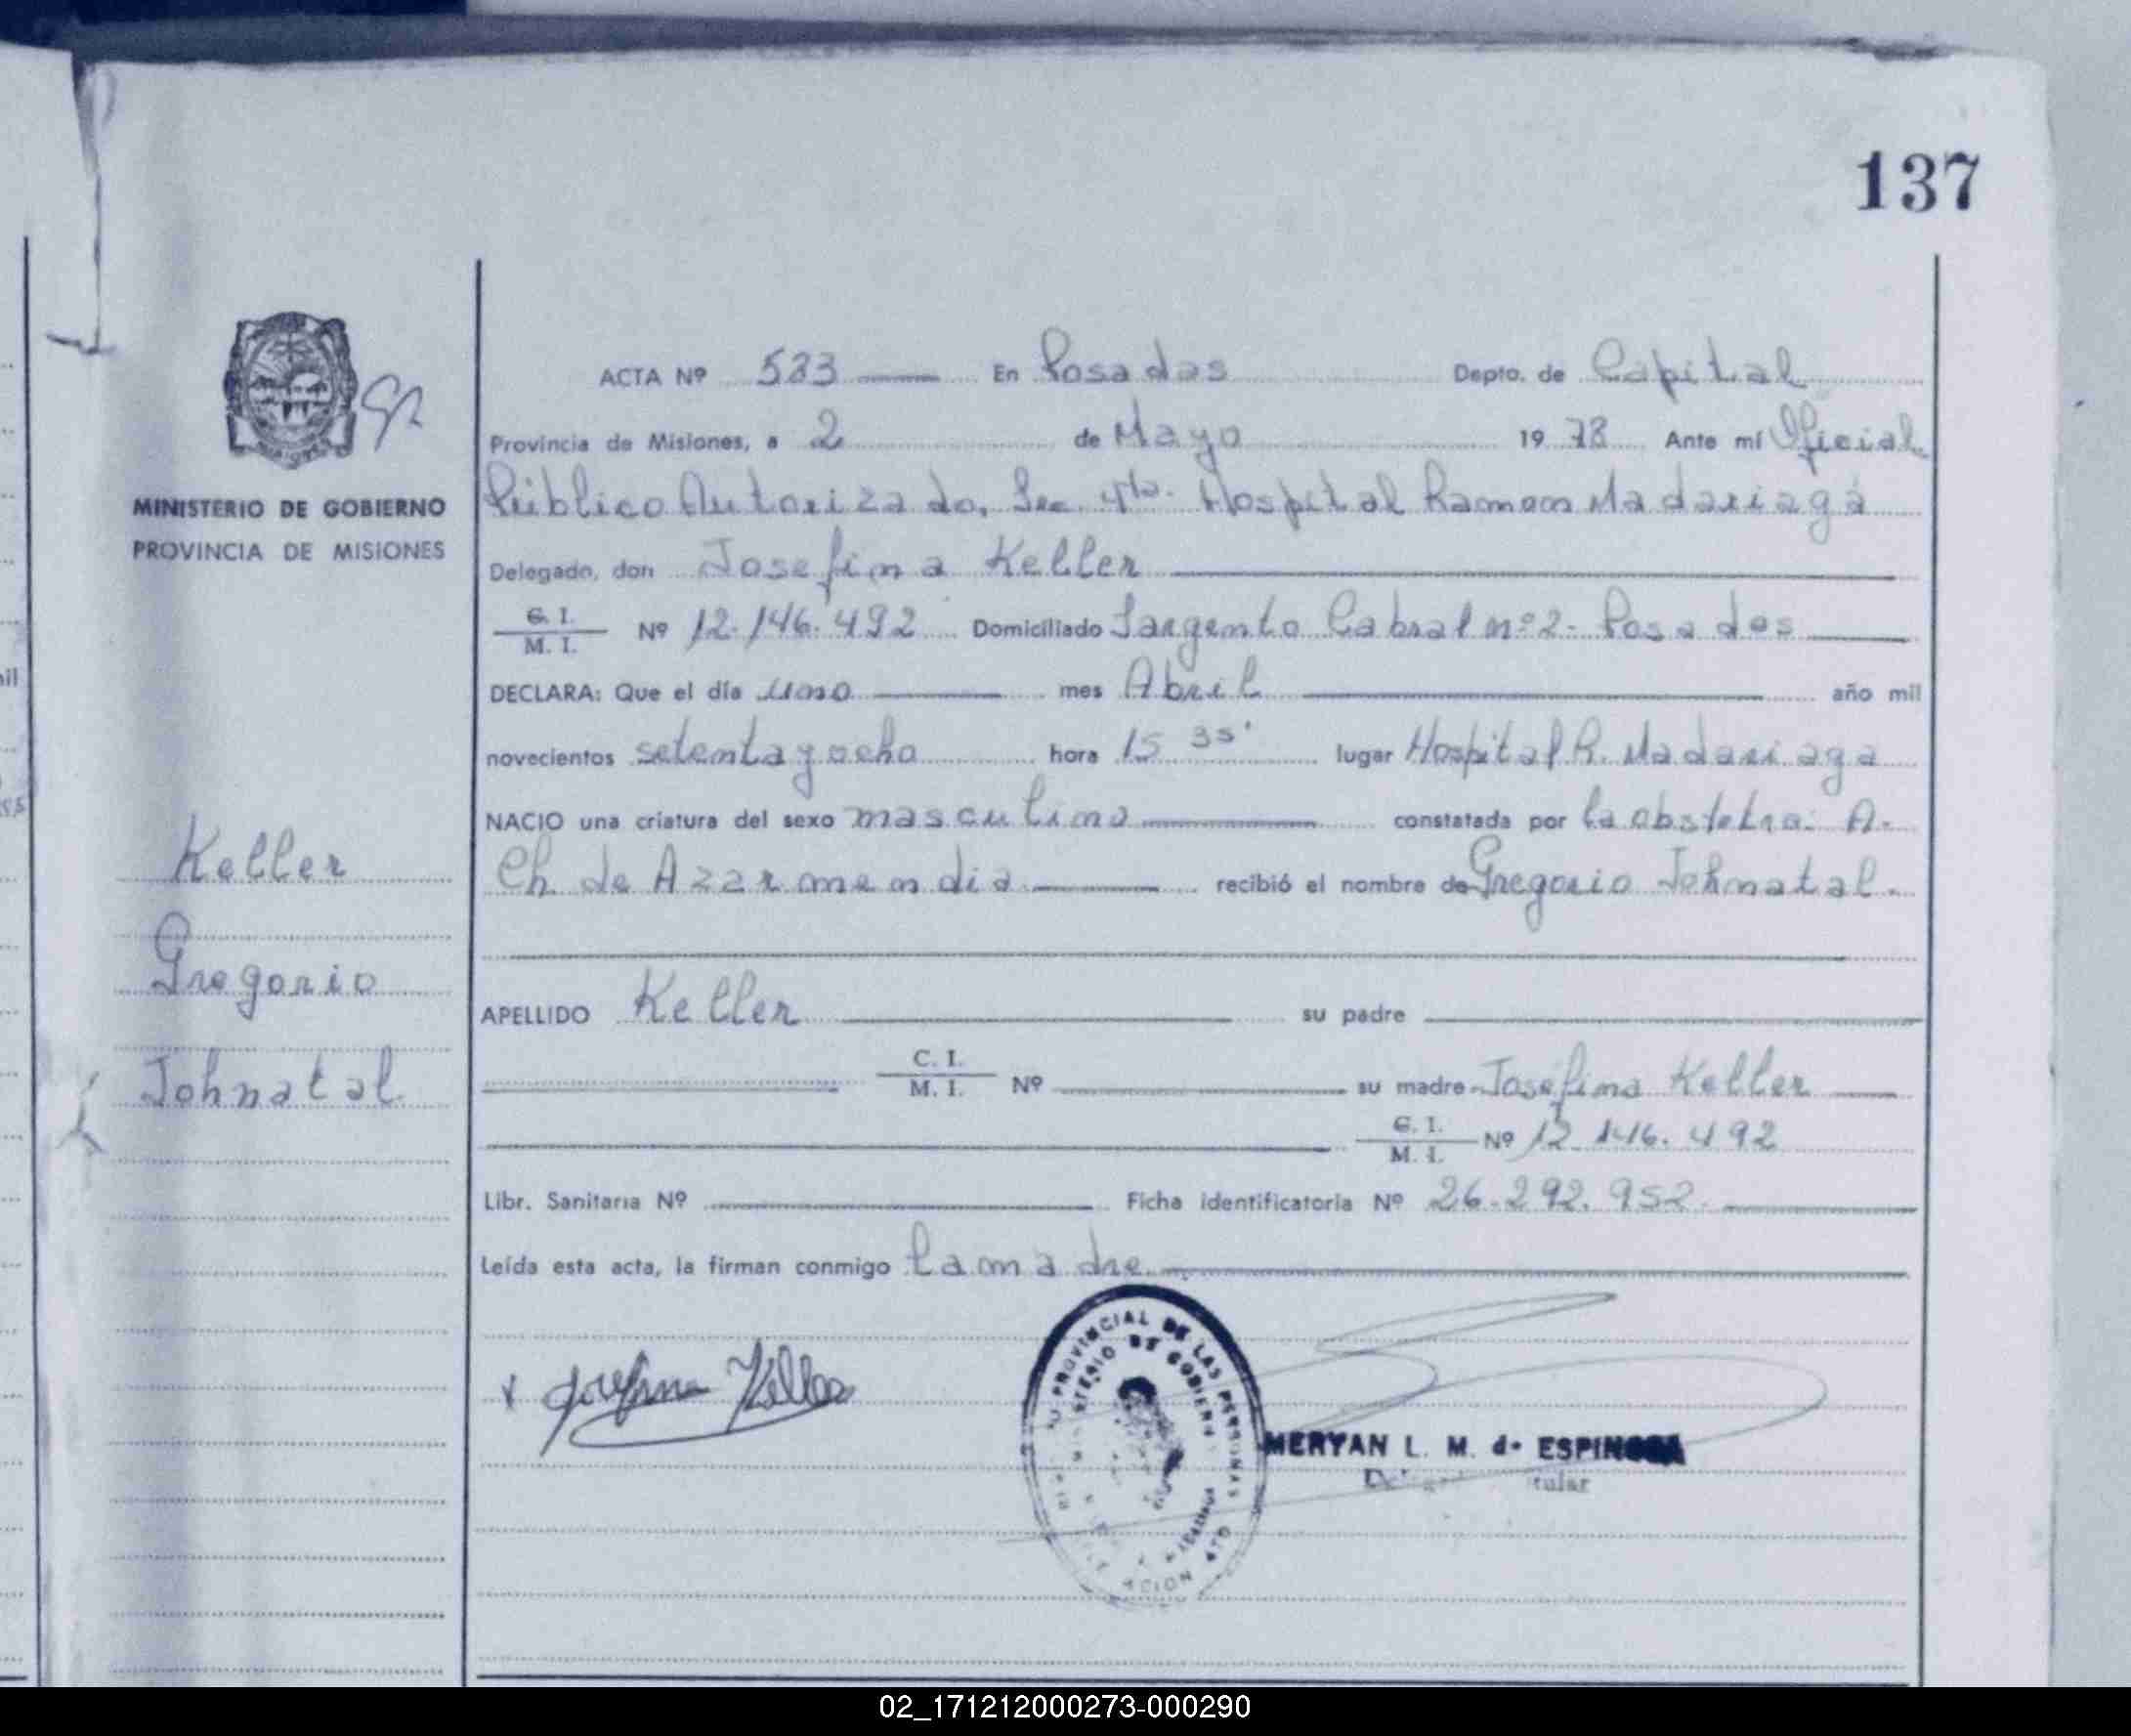 137
ACTA Nº 533 En Posadas Depto. de Capital
Provincia de Misiones, a 2 de Mayo 19 78 Ante mí Oficial
Público Autorizado, Sec. 4ta. Hospital Ramon Madariaga
MINISTERIO DE GOBIERNO
PROVINCIA DE MISIONES
Delegado, don Josefina Keller
C. I.
M. I. Nº 12.146.492 Domiciliado Sargento Cabral nº 2 - Posadas
DECLARA: Que el día uno mes Abril año mil
novecientos setenta y ocho hora 15 35' lugar Hospital R. Madariaga
NACIO una criatura del sexo masculino constatada por la obstetra: A.
Ch de Azarmendia recibió el nombre de Gregorio Johnatal.
Keller
Gregorio
Johnatal
APELLIDO Keller su padre
C. I.
M. I. Nº su madre Josefina Keller
C. I.
M. I. Nº 12.146.492
Libr. Sanitaria Nº Ficha identificatoria Nº 26.292.952
Leída esta acta, la firman conmigo la madre
Josefina Keller
PROVINCIAL DE LAS PERSONAS
DE GOBIERNO
MERYAN L. M. de ESPINOSA
02_171212000273-000290